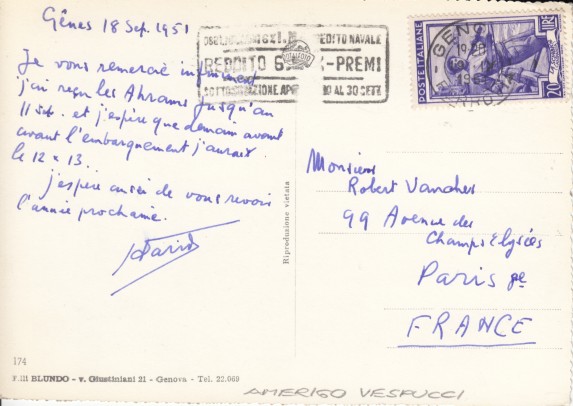 Gênes 18 Sep. 1951
Je vous remercie infiniment
j'ai reçu les Ahrams jusqu'au
11 sep. et j'espère que demain avant
avant l'embarquement j'aurais
le 12 & 13.
j'espère aussi de vous revoir
l'année prochaine.
EDITO NAVALE
REDDITO 6 -PREMI
SOTTOSCRIZIONE 10 AL 30 SETT.
GENOVA
POSTE ITALIANE
20
Monsieur
Robert Vaucher
99 Avenue des
Champs Elysées
Paris 8e
FRANCE
Riproduzione vietata
174
F.lli BLUNDO - v. Giustiniani 21 - Genova - Tel. 22.069
AMERIGO VESPUCCI